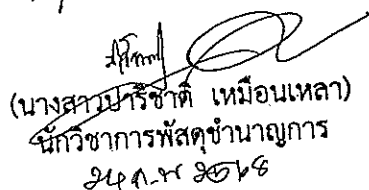 (นางสาวปาริชาติ เหมือนเหลา)
นักวิชาการพัสดุชำนาญการ
24 ก.พ 2568